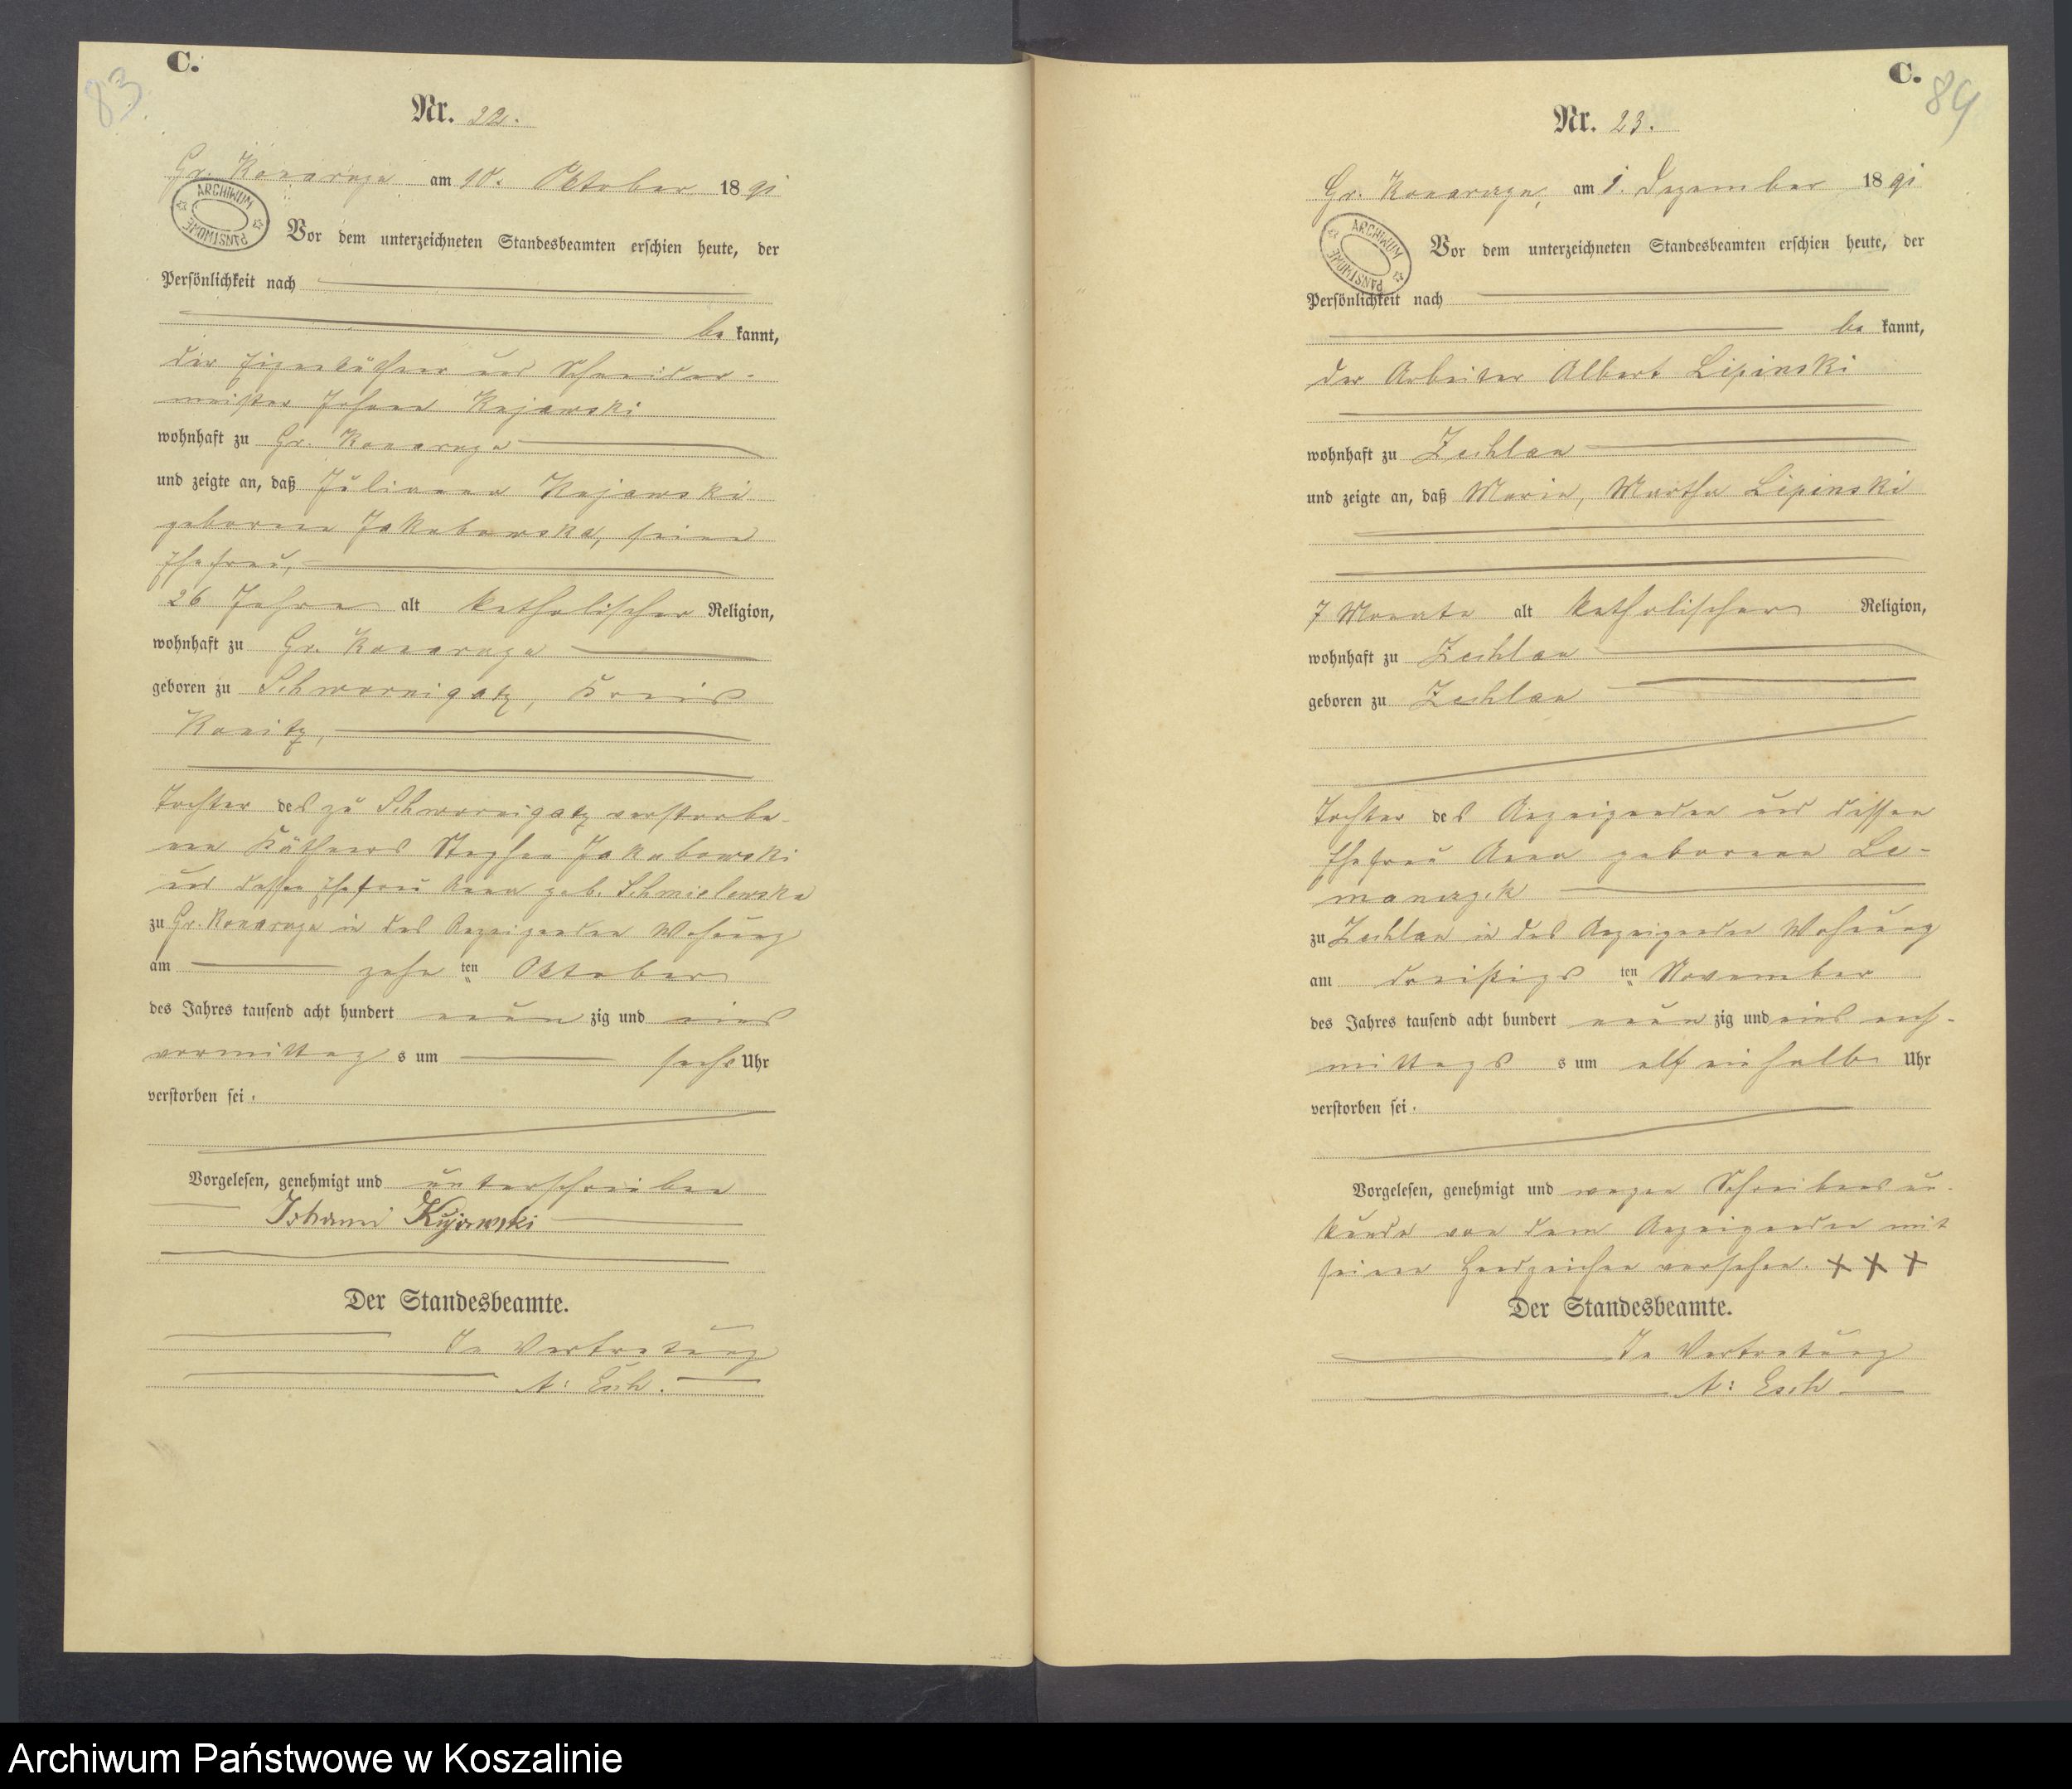 83
C.
Nr. 22.
Gr. Konarzyn am 10. Oktober 1891
ARCHIWUM PAŃSTWOWE
Vor dem unterzeichneten Standesbeamten erschien heute, der
Persönlichkeit nach
be kannt,
der Eigenkäthner und Schneider-
meister Johann Kujawski
wohnhaft zu Gr. Konarzyn
und zeigte an, daß Julianna Kujawski
geborene Jakubowska, seine
Ehefrau,
26 Jahre alt katholischer Religion,
wohnhaft zu Gr. Konarzyn
geboren zu Schwornigatz, Kreis
Konitz,
Tochter des zu Schwornigatz verstorbe-
nen Käthners Stephan Jakubowski
und dessen Ehefrau Anna geb. Schmielewska
zu Gr. Konarzyn in des Anzeigenden Wohnung
am zehn ten Oktober
des Jahres tausend acht hundert neun zig und eins
vormittag s um sechs Uhr
verstorben sei.
Vorgelesen, genehmigt und unterschrieben
Johann Kujawski
Der Standesbeamte.
In Vertretung
A: Esch.
C.
84
Nr. 23.
Gr. Konarzyn, am 1. Dezember 1891
ARCHIWUM PAŃSTWOWE
Vor dem unterzeichneten Standesbeamten erschien heute, der
Persönlichkeit nach
be kannt,
der Arbeiter Albert Lipinski
wohnhaft zu Zechlau
und zeigte an, daß Maria, Martha Lipinski
7 Monate alt katholischer Religion,
wohnhaft zu Zechlau
geboren zu Zechlau
Tochter des Anzeigenden und dessen
Ehefrau Anna geborene
zu Zechlau in des Anzeigenden Wohnung
am dreißigs ten November
des Jahres tausend acht hundert neun zig und eins nach-
mittags s um elf ein halb Uhr
verstorben sei.
Vorgelesen, genehmigt und wegen Schreibensun-
kunde von dem Anzeigenden mit
seinen Handzeichen versehen. + + +
Der Standesbeamte.
In Vertretung
A: Esch
Archiwum Państwowe w Koszalinie